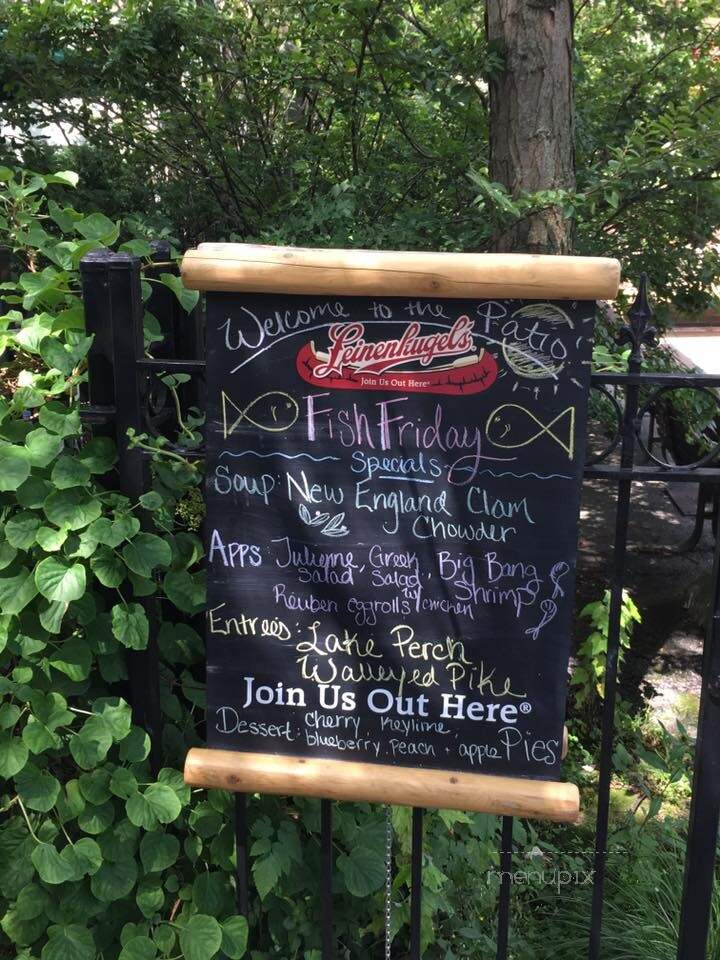 Welcome to the Patio
Leinenkugel's
Join Us Out Here®
Fish Friday
Specials
Soup: New England Clam
Chowder
Apps: Julienne Salad, Greek Salad w/ chicken, Big Bang Shrimp
Reuben eggrolls
Entrees: Lake Perch
Walleyed Pike
Join Us Out Here®
Dessert: cherry, keylime,
blueberry, peach + apple Pies
menupix